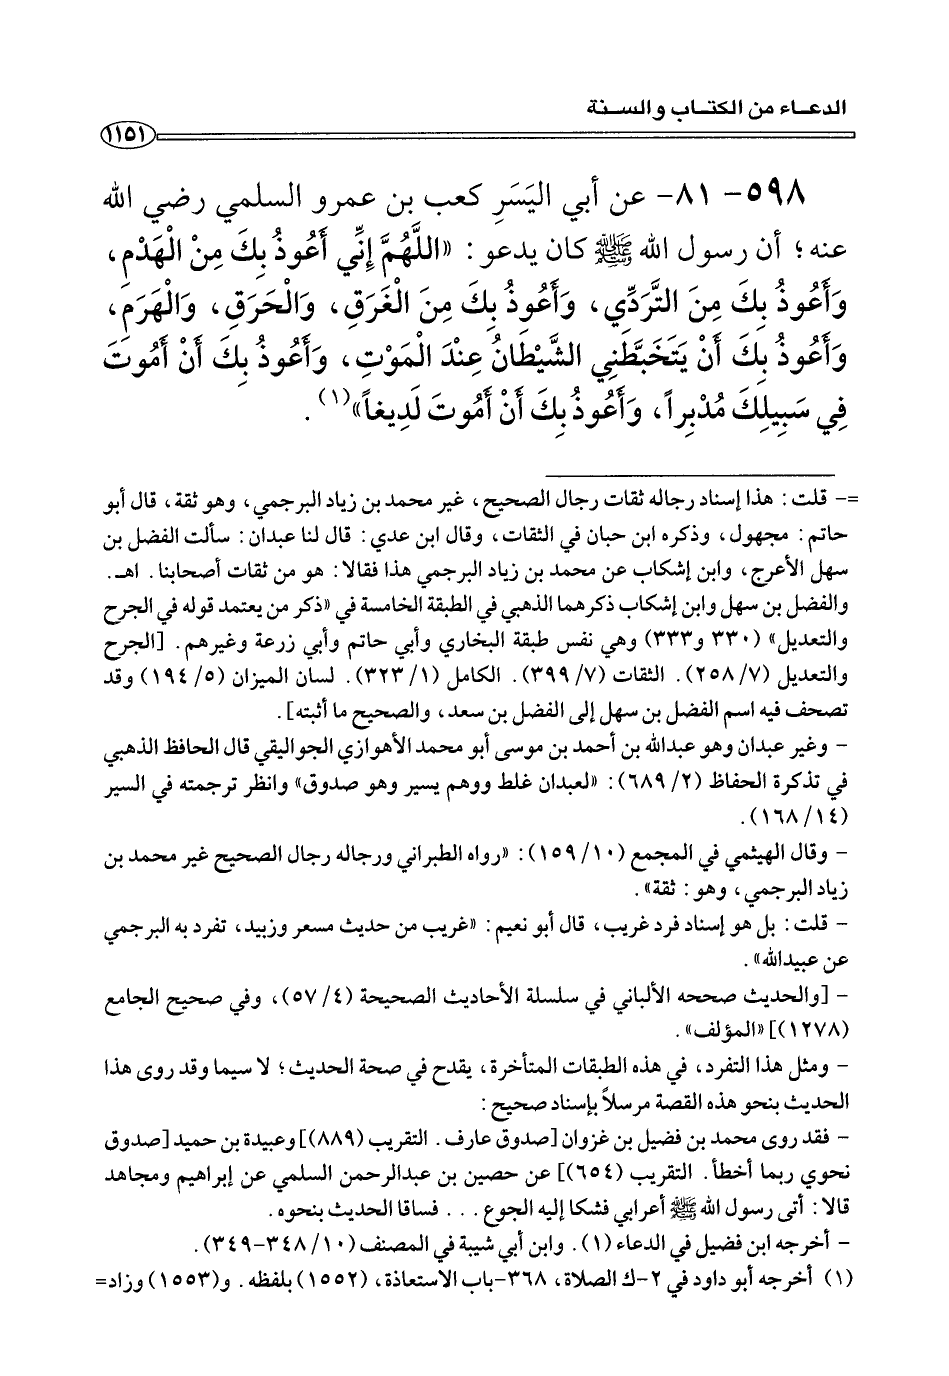 الدعاء من الكتاب والسنة
١١٥١
٥٩٨- ٨١- عن أبي اليَسَرِ كعب بن عمرو السلمي رضي الله
عنه؛ أن رسول الله ﷺ كان يدعو: «اللَّهُمَّ إِنِّي أَعُوذُ بِكَ مِنْ الْهَدْمِ،
وَأَعُوذُ بِكَ مِنَ التَّرَدِّي، وَأَعُوذُ بِكَ مِنَ الْغَرَقِ، وَالْحَرَقِ، وَالْهَرَمِ،
وَأَعُوذُ بِكَ أَنْ يَتَخَبَّطَنِي الشَّيْطَانُ عِنْدَ الْمَوْتِ، وَأَعُوذُ بِكَ أَنْ أَمُوتَ
فِي سَبِيلِكَ مُدْبِراً، وَأَعُوذُ بِكَ أَنْ أَمُوتَ لَدِيغاً»(١).
=- قلت: هذا إسناد رجاله ثقات رجال الصحيح، غير محمد بن زياد البرجمي، وهو ثقة، قال أبو
حاتم: مجهول، وذكره ابن حبان في الثقات، وقال ابن عدي: قال لنا عبدان: سألت الفضل بن
سهل الأعرج، وابن إشكاب عن محمد بن زياد البرجمي هذا فقالا: هو من ثقات أصحابنا. اهـ.
والفضل بن سهل وابن إشكاب ذكرهما الذهبي في الطبقة الخامسة في «ذكر من يعتمد قوله في الجرح
والتعديل» (٣٣٠ و٣٣٣) وهي نفس طبقة البخاري وأبي حاتم وأبي زرعة وغيرهم. [الجرح
والتعديل (٢٥٨/٧). الثقات (٣٩٩/٧). الكامل (٣٢٣/١). لسان الميزان (١٩٤/٥) وقد
تصحف فيه اسم الفضل بن سهل إلى الفضل بن سعد، والصحيح ما أثبته].
- وغير عبدان وهو عبدالله بن أحمد بن موسى أبو محمد الأهوازي الجواليقي قال الحافظ الذهبي
في تذكرة الحفاظ (٦٨٩/٢): «لعبدان غلط ووهم يسير وهو صدوق» وانظر ترجمته في السير
(١٦٨/١٤).
- وقال الهيثمي في المجمع (١٥٩/١٠): «رواه الطبراني ورجاله رجال الصحيح غير محمد بن
زياد البرجمي، وهو: ثقة».
- قلت: بل هو إسناد فرد غريب، قال أبو نعيم: «غريب من حديث مسعر وزبيد، تفرد به البرجمي
عن عبيدالله».
- [والحديث صححه الألباني في سلسلة الأحاديث الصحيحة (٥٧/٤)، وفي صحيح الجامع
(١٢٧٨)] «المؤلف».
- ومثل هذا التفرد، في هذه الطبقات المتأخرة، يقدح في صحة الحديث؛ لا سيما وقد روى هذا
الحديث بنحو هذه القصة مرسلاً بإسناد صحيح:
- فقد روى محمد بن فضيل بن غزوان [صدوق عارف. التقريب (٨٨٩)] وعبيدة بن حميد [صدوق
نحوي ربما أخطأ. التقريب (٦٥٤)] عن حصين بن عبدالرحمن السلمي عن إبراهيم ومجاهد
قالا: أتى رسول الله ﷺ أعرابي فشكا إليه الجوع . . . فساقا الحديث بنحوه.
- أخرجه ابن فضيل في الدعاء (١). وابن أبي شيبة في المصنف (٣٤٨/١٠-٣٤٩).
(١) أخرجه أبو داود في ٢-ك الصلاة، ٣٦٨-باب الاستعاذة، (١٥٥٢) بلفظه. و(١٥٥٣) وزاد=